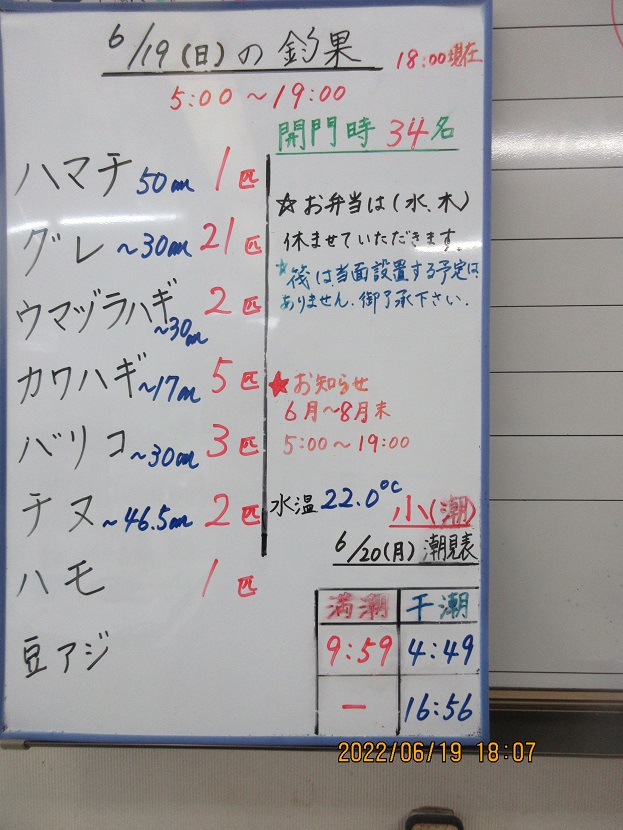 6/19(日)の釣果
18:00現在
5:00～19:00
開門時 34名
ハマチ 50cm 1匹
グレ ～30cm 21匹
ウマヅラハギ ～30cm 2匹
カワハギ ～17cm 5匹
バリコ ～30cm 3匹
チヌ ～46.5cm 2匹
ハモ 1匹
豆アジ
☆お弁当は(水、木)
休ませていただきます。
☆筏は当面設置する予定は
ありません。御了承下さい。
★お知らせ
6月～8月末
5:00～19:00
水温 22.0℃
小(潮)
6/20(月)潮見表
満潮 干潮
9:59 4:49
ー 16:56
2022/06/19 18:07